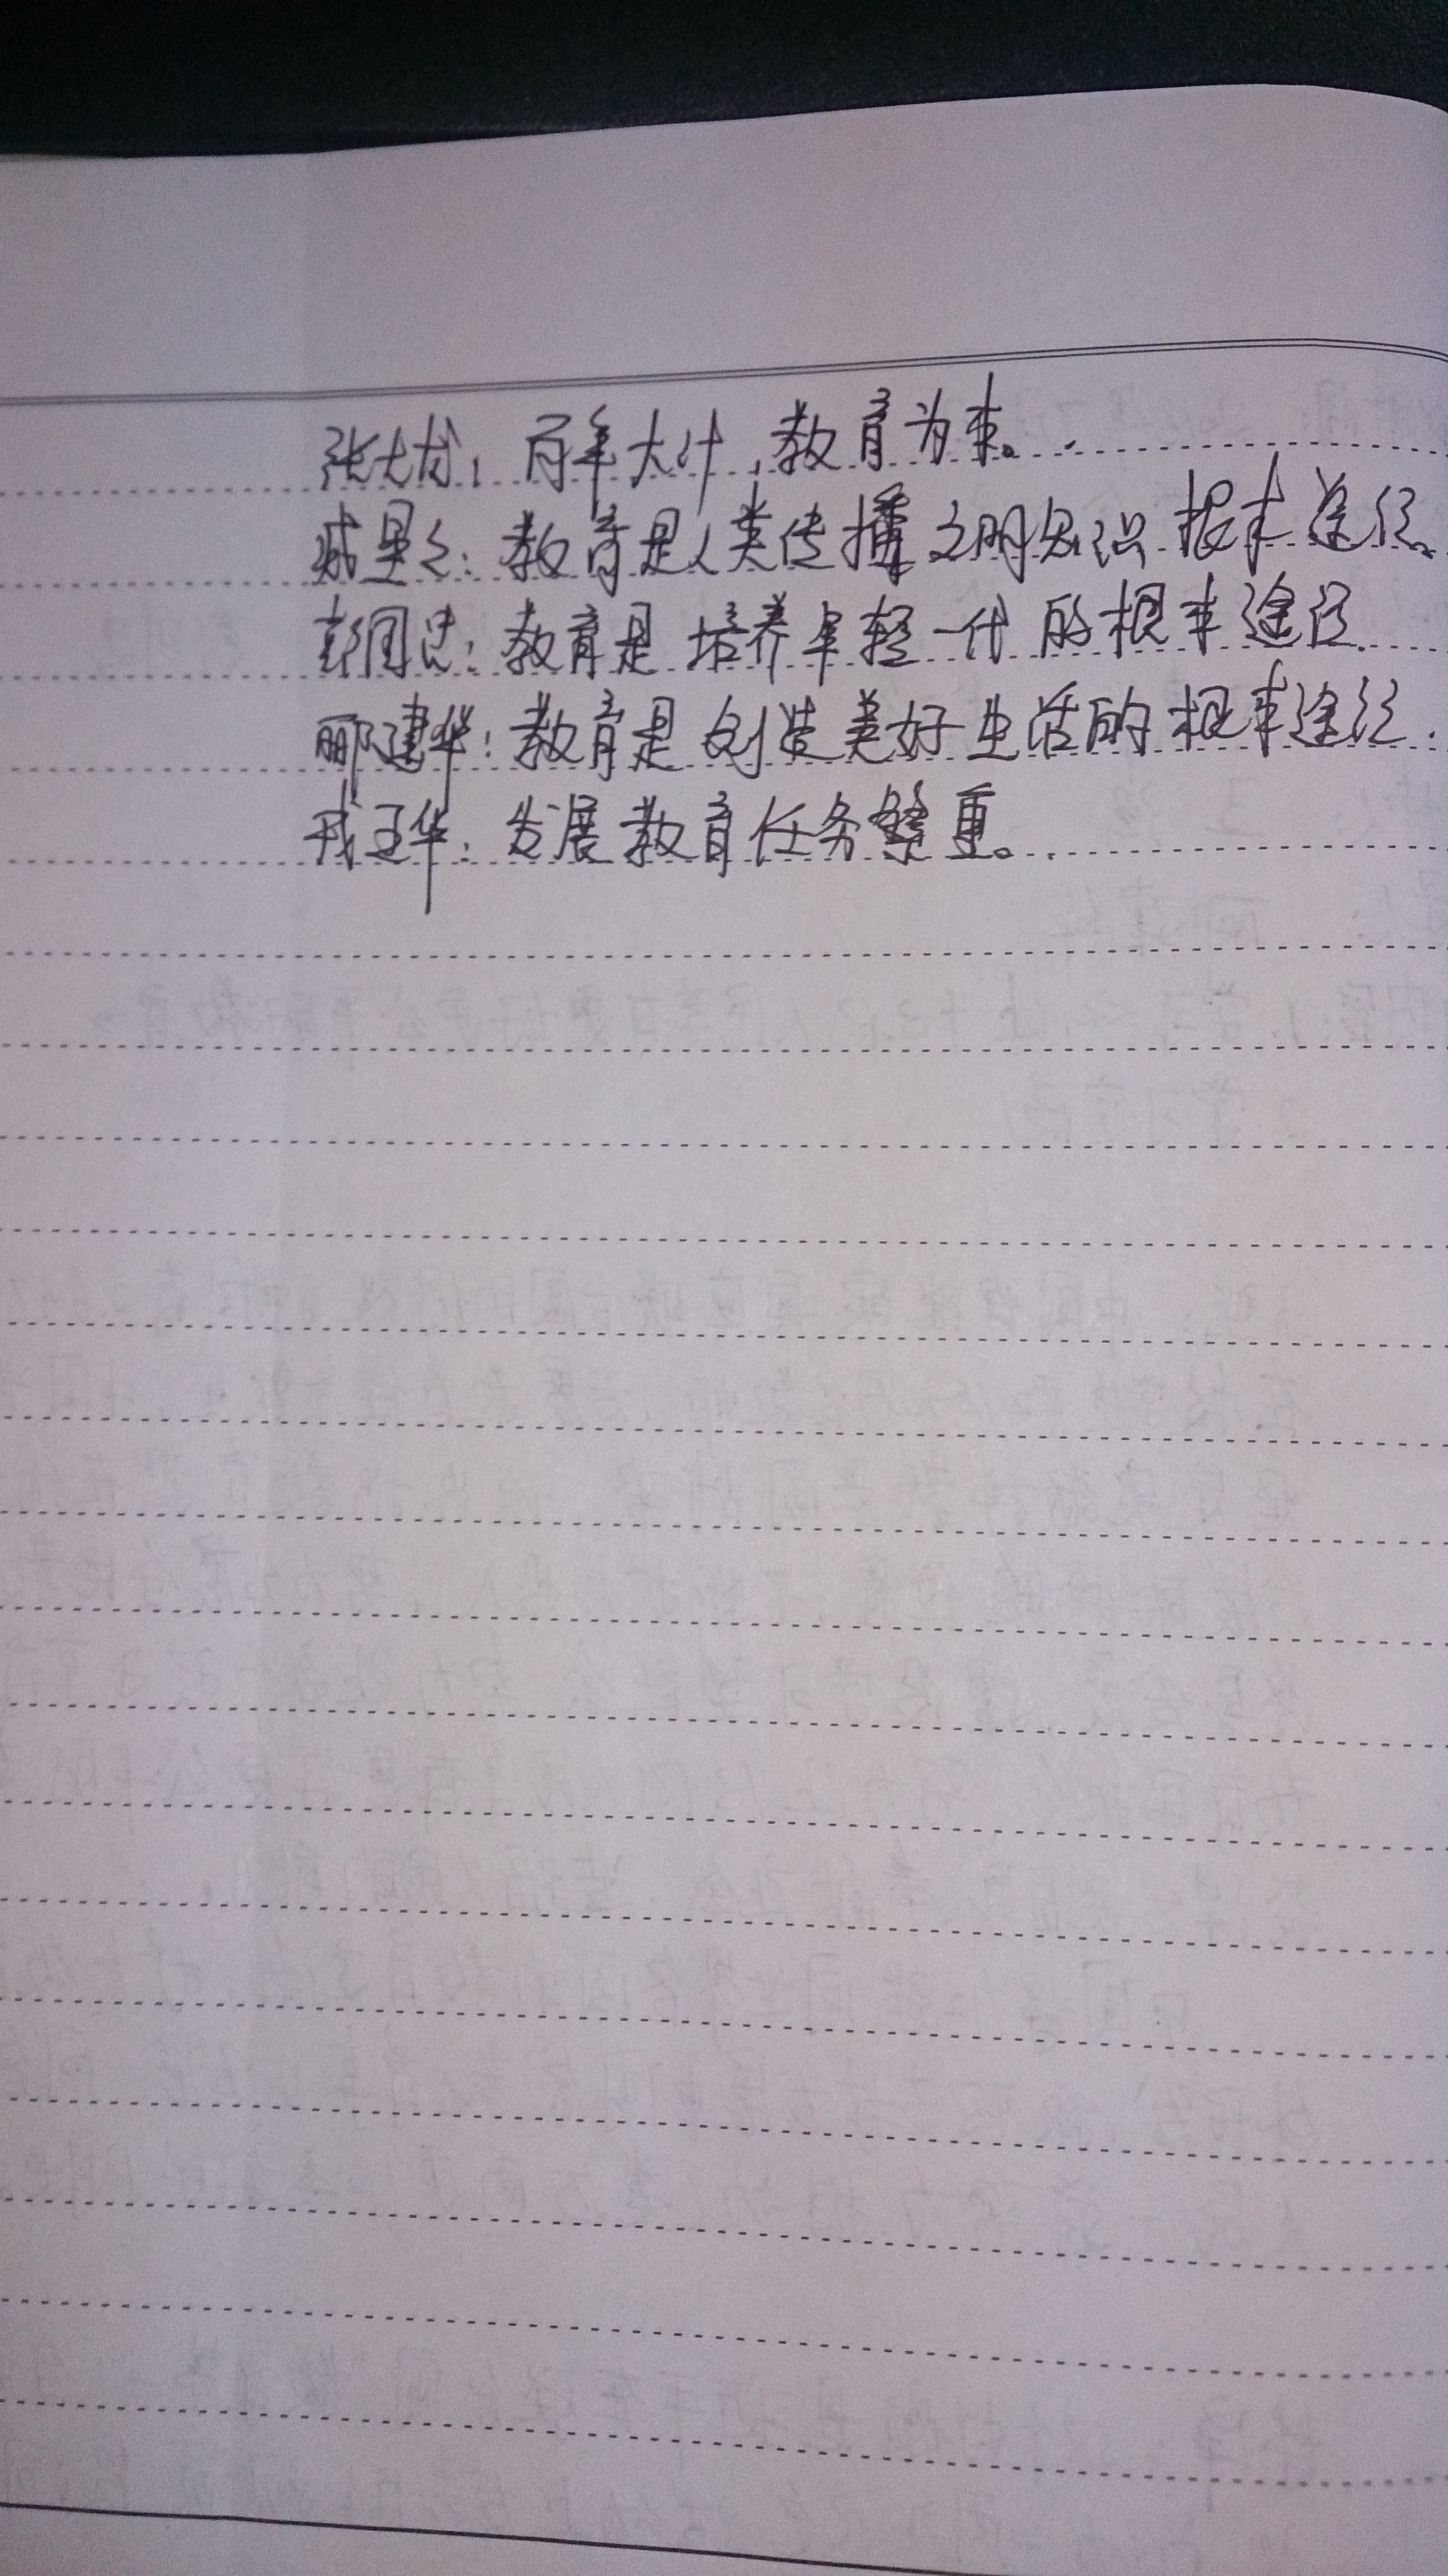 张大成：百年大计，教育为本。
戚星之：教育是人类传播文明知识 根本途径。
彭国忠：教育是 培养年轻一代 的根本途径.
郦建华：教育是 创造美好生活的根本途径.
戎玉华：发展教育任务繁重。